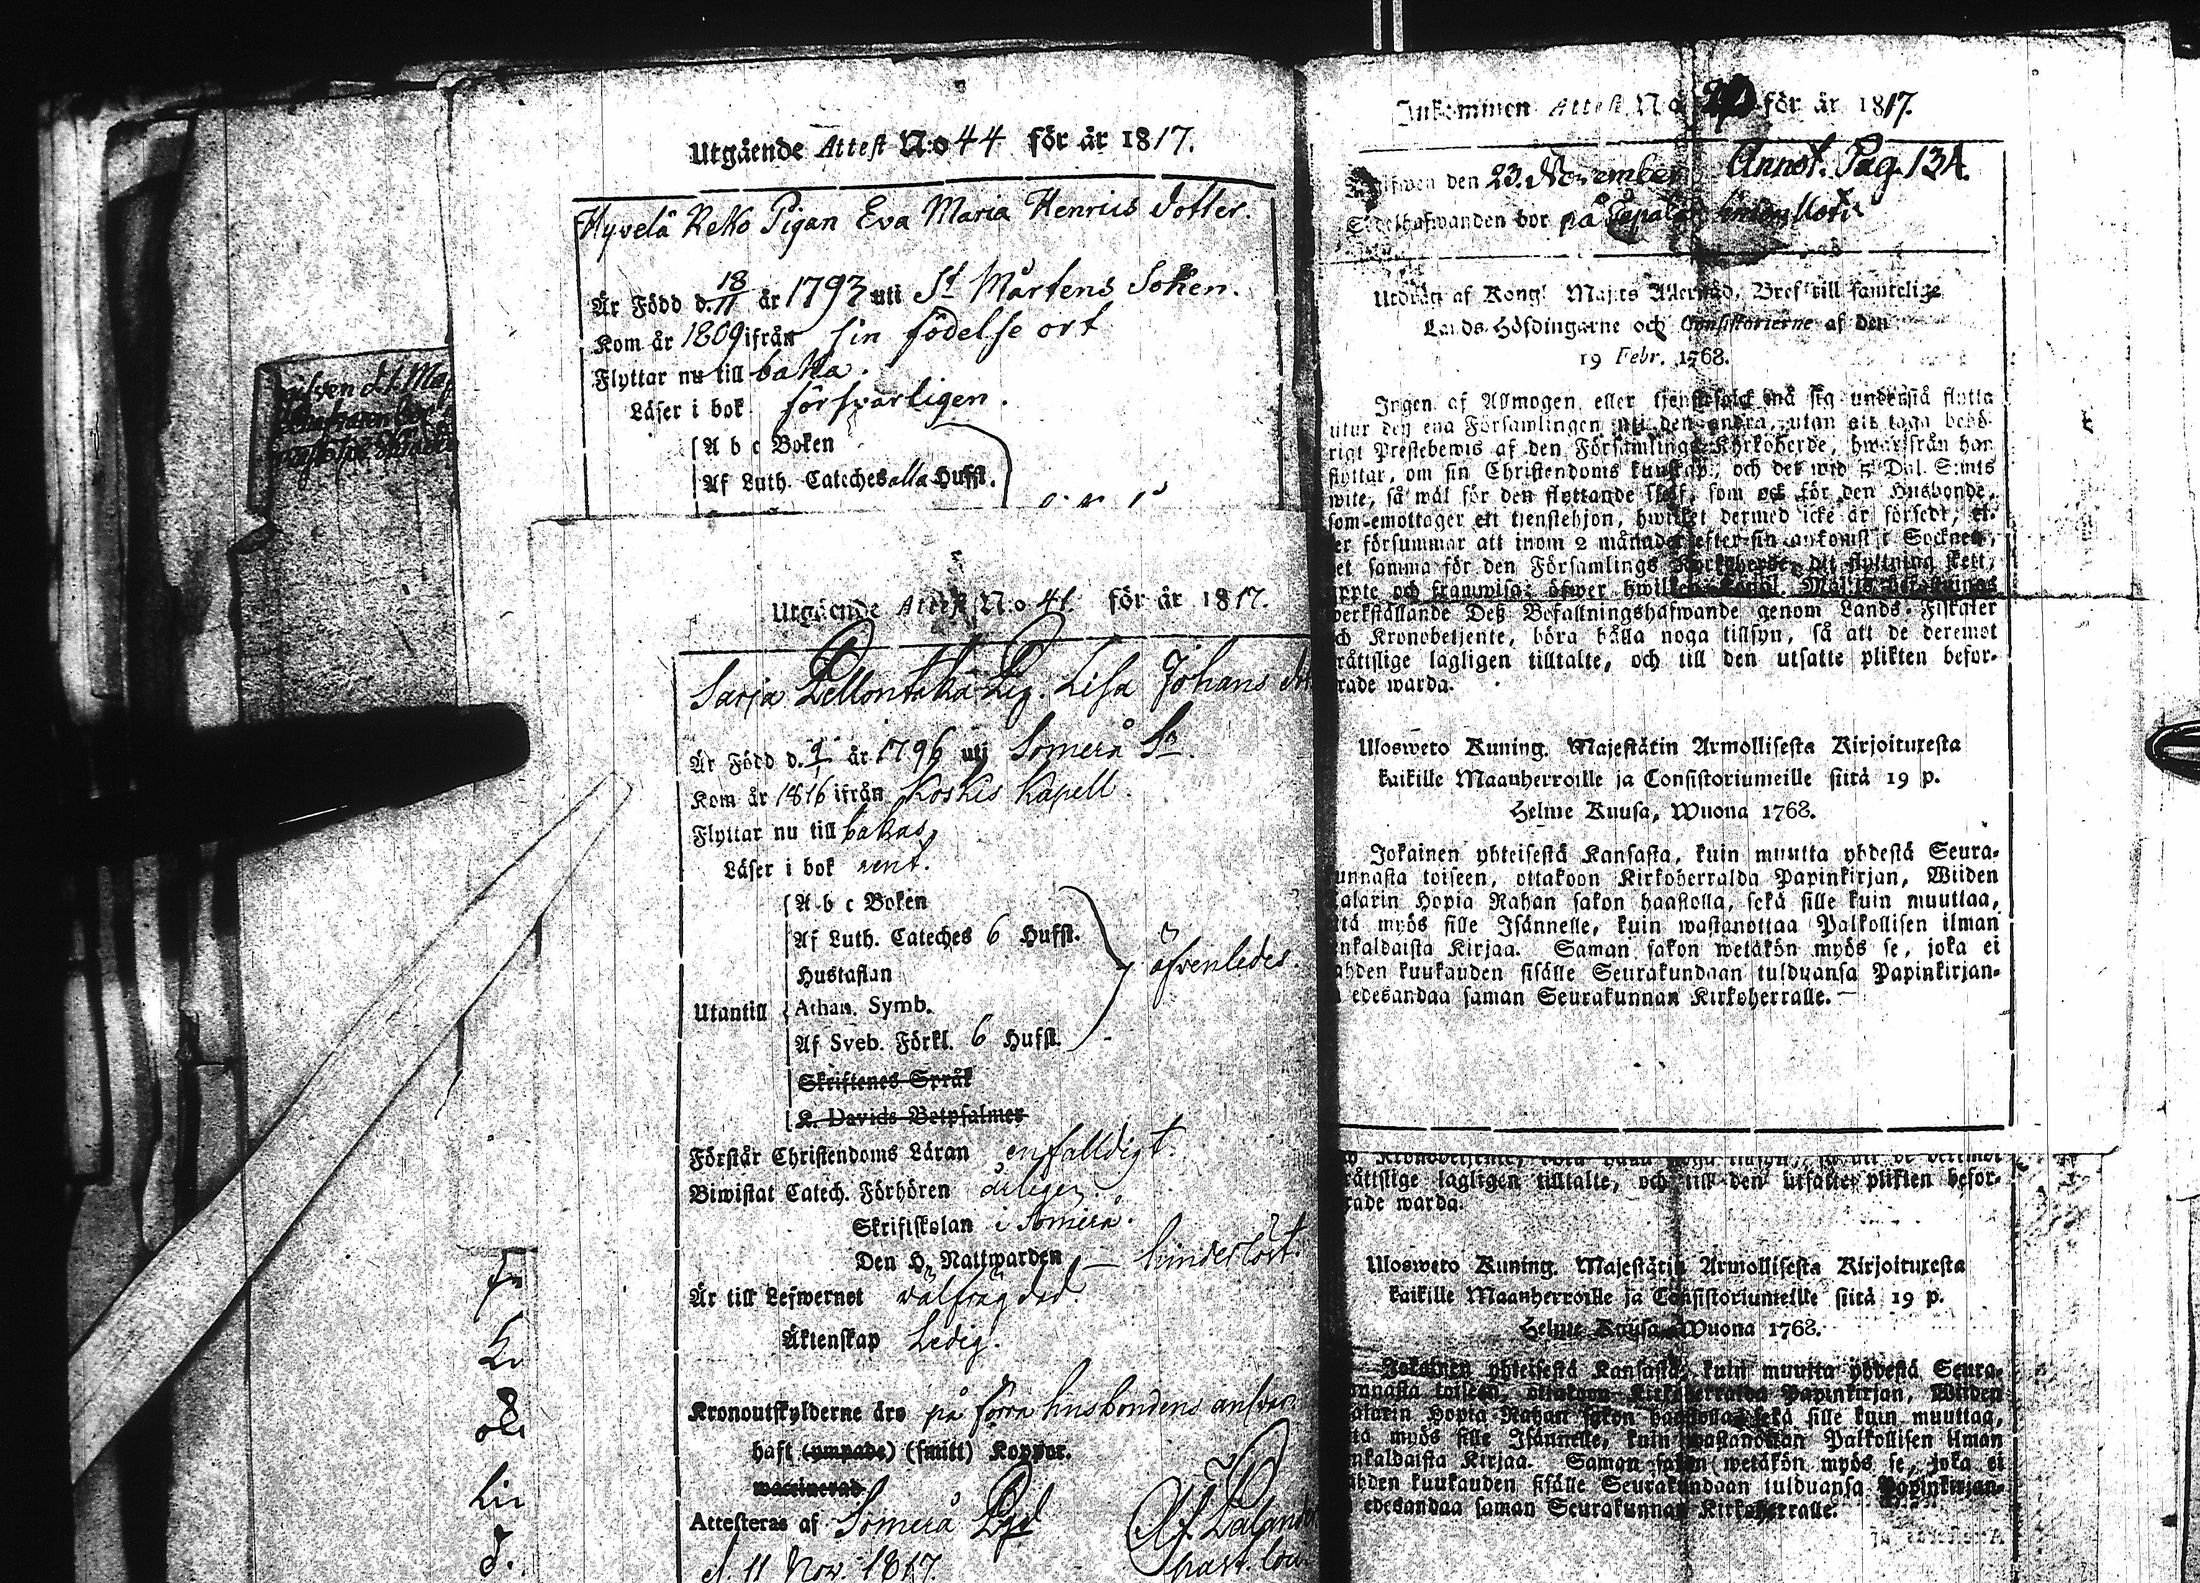 Utgående Attest N:o 44 för år 1817.
Hyvelä Reko Pigan Eva Maria Henrics dotter.
Är Född d. 18/11 år 1793 uti St Mårtens Soken.
Kom år 1809 ifrån sin födelse ort
Flyttar nu till baka.
Läser i bok försvarligen.
A b c Boken
Af Luth. Cateches alla Hufst.
Utgående Attest N:o 41 för år 1817.
Sarja Pellontaka Pig. Lisa Johans
Är Född d. 9/1 år 1796 uti Somerå Sn.
Kom år 1816 ifrån Koskis Kapell.
Flyttar nu till bakas,
Läser i bok rent.
A b c Boken
Af Luth. Cateches 6 Hufst.
Hustaflan
Utantill Athan. Symb.
Af Sveb. Förkl. 6 Hufst.
äfvenledes.
Skriftenes Språk
K. Davids Botpsalmer
Förstår Christendoms Läran enfalldigt.
Biwistat Catech. Förhören årligen.
Skriftskolan i Somerå.
Den H. Nattwarden — hinderlöst.
Är till Lefwernet välfrägdad
Äktenskap Ledig.
Kronoutskylderne äro på förra husbondens answar
haft (ympade) (smitt) Koppor.
waccinerad
Attesteras af Somerå
d. 11 Nov. 1817.
Inkommen Attest N:o för år 1817.
den 23. November Annot. Pag. 134.
Sedelhafwanden bor på
Utdrag af Kongl. Maj:ts Allernåd. Bref till samtelige
Lands-Höfdingarne och Consistorierne af den
19 Febr. 1768.
Ingen af Allmogen eller tjenstefolck må sig understå flytta
utur den ena Församlingen uti den andra, utan att taga behö-
rigt Prestebewis af den Församlings Kyrkoherde, hwarifrån han
flyttar, om sin Christendoms kunskap, och det wid 5 Dal. S:mts
wite, så wäl för den flyttande sjelf, som ock för den Husbonde,
som emottager ett tienstehjon, hwilket dermed icke är försedt, el-
er försummar att inom 2 månader efter sin ankomst i Socknen,
et samma för den Församlings Kyrkoherde, dit flyttning skett,
ppte och framwisa; öfwer hwilken Kongl. Maj:ts befallnings
verkställande Deß Befallningshafwande genom Lands-Fiskaler
ch Kronobetjente, böra hålla noga tillsyn, så att de deremot
rättslige lagligen tilltalte, och till den utsatte plikten befor-
rade warda.
Ulosweto Kuning. Majestätin Armollisesta Kirjoituxesta
kaikille Maanherroille ja Consistoriumeille siitä 19 p.
Helme Kuusa, Wuona 1768.
Jokainen yhteisestä Kansasta, kuin muutta yhdestä Seura-
unnasta toiseen, ottakoon Kirkoherralda Papinkirjan, Wiiden
alarin Hopia Rahan sakon haastolla, sekä sille kuin muuttaa,
tä myös sille Isännelle, kuin wastanottaa Palkollisen ilman
nkaldaista Kirjaa. Saman sakon wetäkön myös se, joka ei
ahden kuukauden sisälle Seurakundaan tulduansa Papinkirjan-
edesandaa saman Seurakunnan Kirkoherralle.
rättslige lagligen tilltalte, och till den utsatte plikten befor-
rade warda.
Ulosweto Kuning. Majestätin Armollisesta Kirjoituxesta
kaikille Maanherroille ja Consistoriumeille siitä 19 p.
Helme Kuusa, Wuona 1768.
Jokainen yhteisestä Kansasta, kuin muutta yhdestä Seura-
unnasta toiseen, ottakoon Kirkoherralda Papinkirjan, Wiiden
alarin Hopia Rahan sakon haastolla, sekä sille kuin muuttaa,
tä myös sille Isännelle, kuin wastanottaa Palkollisen ilman
nkaldaista Kirjaa. Saman sakon wetäkön myös se, joka ei
ahden kuukauden sisälle Seurakundaan tulduansa Papinkirjan-
edesandaa saman Seurakunnan Kirkoherralle.